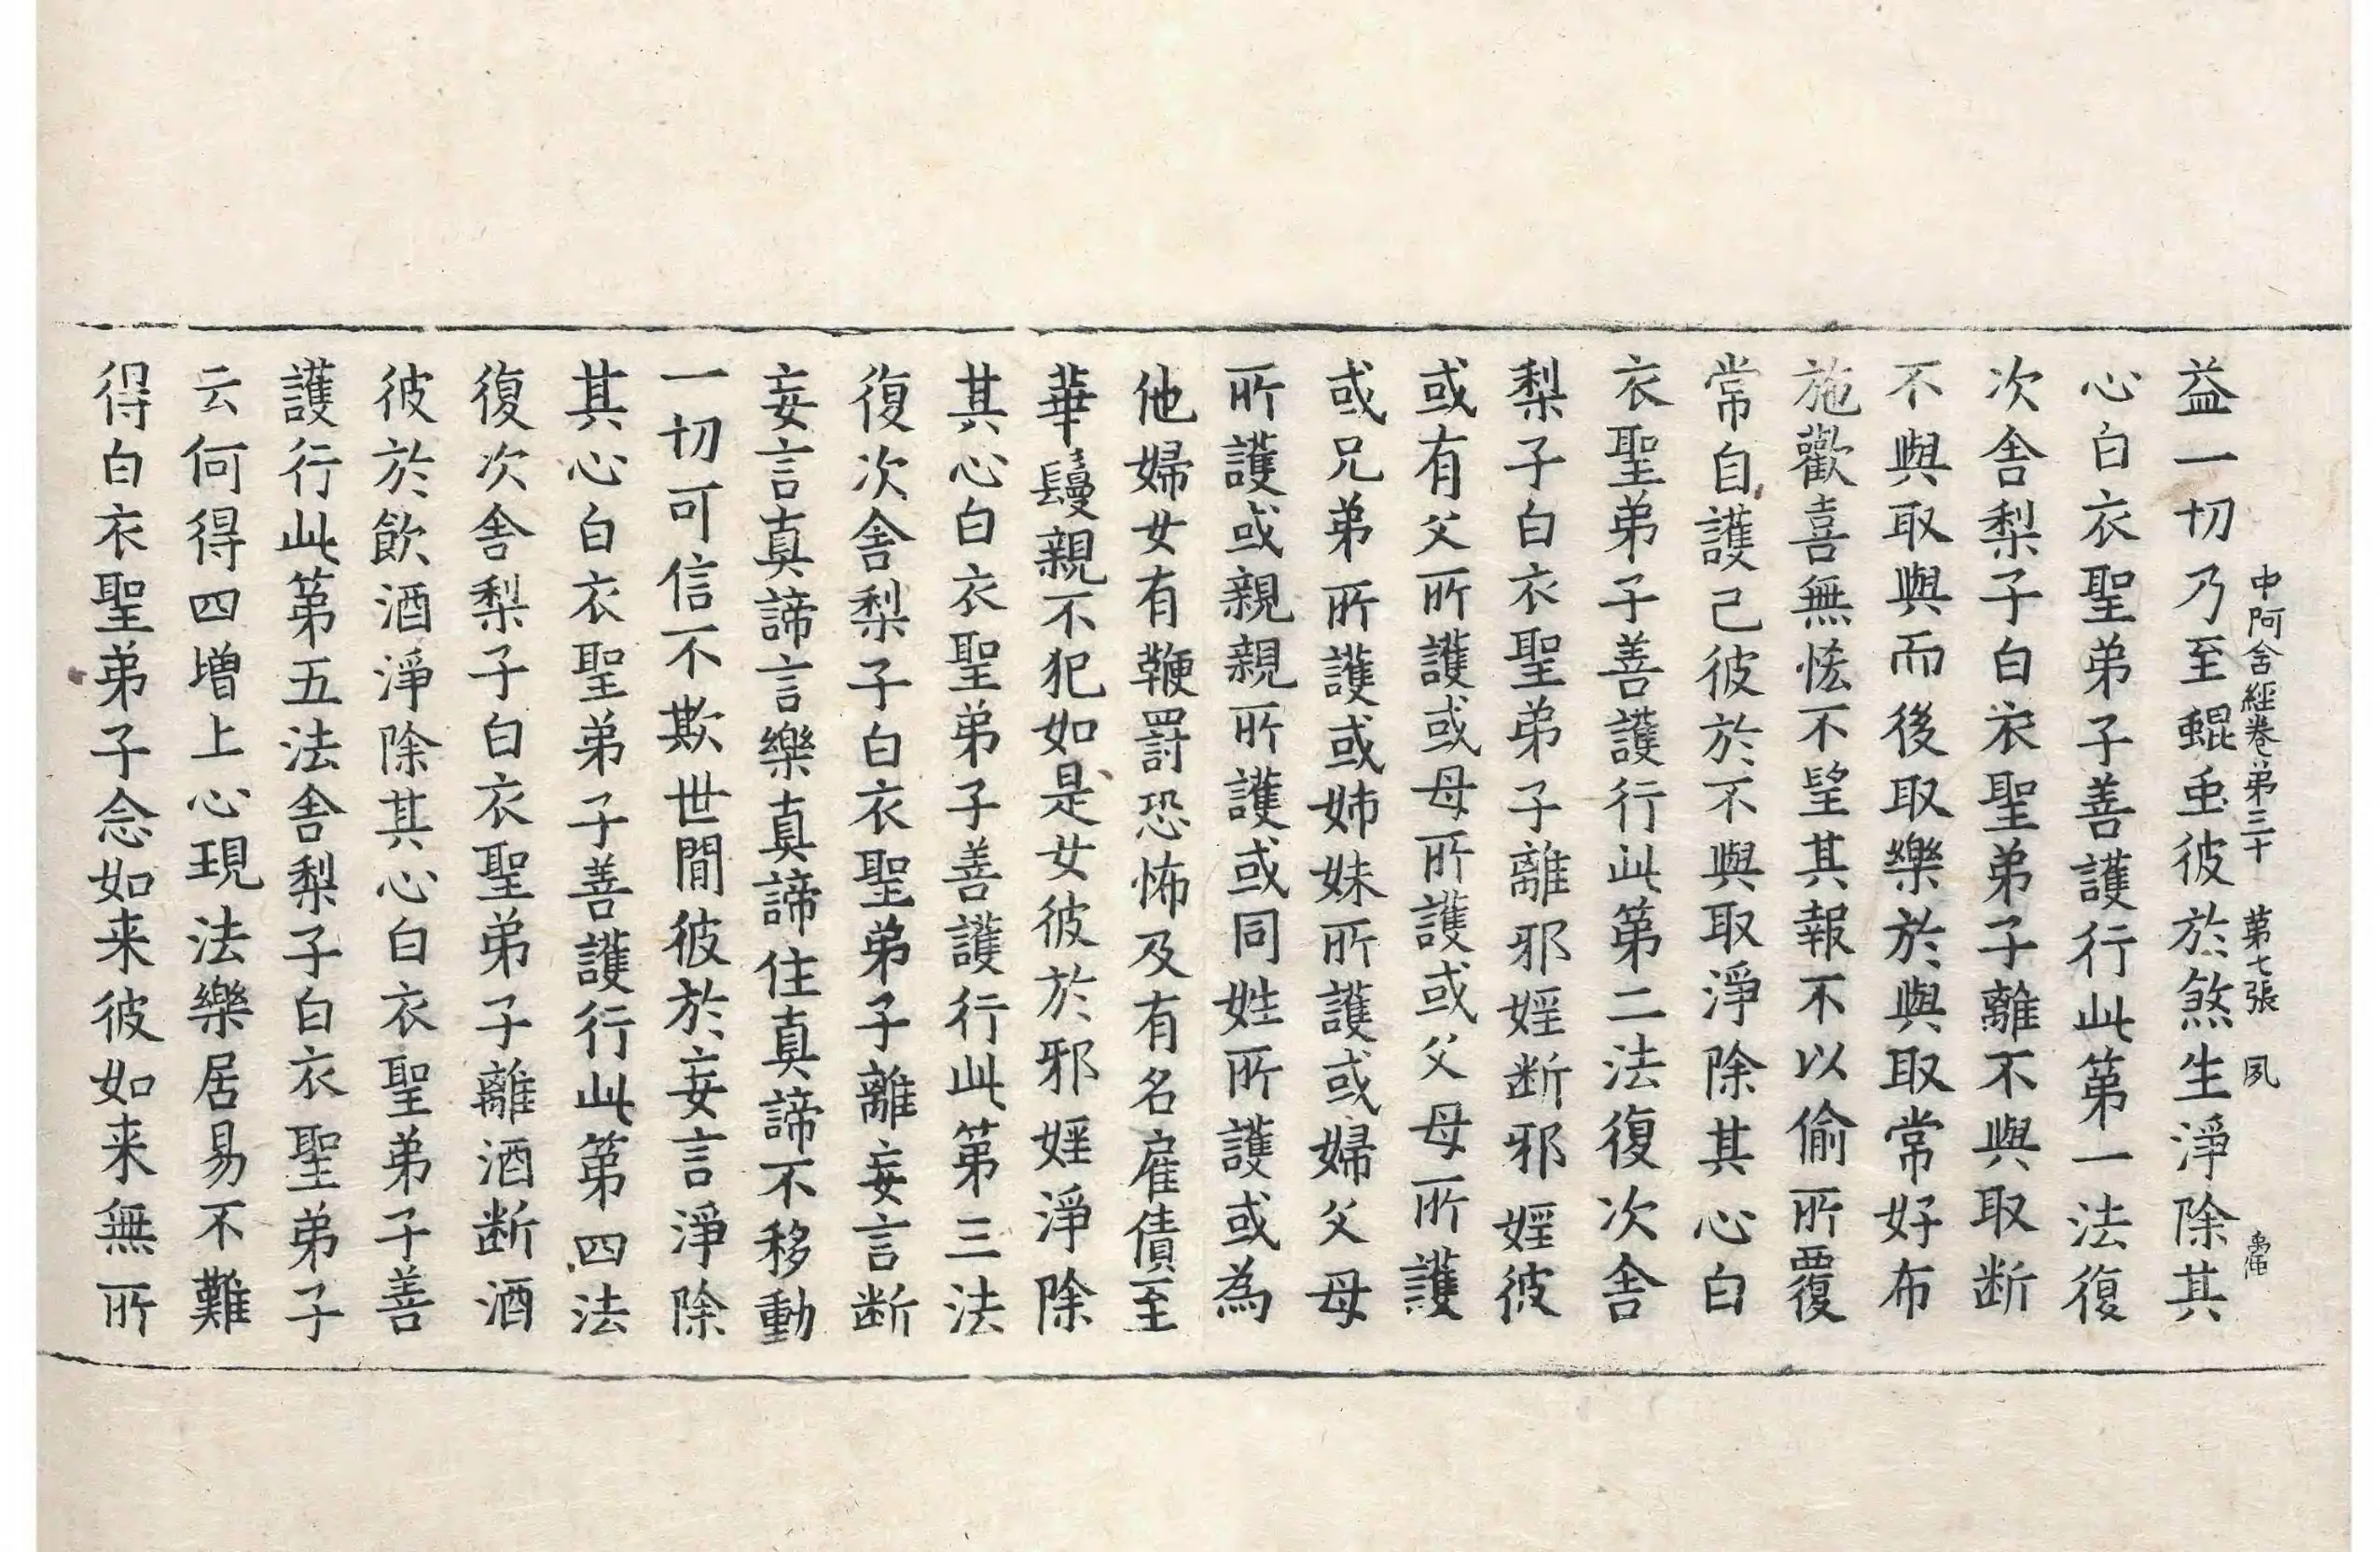 中阿含經卷第三十　第七張　夙
益一切乃至蜫䖝彼於煞生淨除其
心白衣聖弟子善護行此第一法復
次舍梨子白衣聖弟子離不與取断
不與取與而後取樂於與取常好布
施歡喜無恡不望其報不以偷所覆
常自護己彼於不與取淨除其心白
衣聖弟子善護行此第二法復次舍
梨子白衣聖弟子離邪婬断邪婬彼
或有父所護或母所護或父母所護
或兄弟所護或姉妹所護或婦父母
所護或親親所護或同姓所護或為
他婦女有鞭罸恐怖及有名雇債至
華鬘親不犯如是女彼於邪婬淨除
其心白衣聖弟子善護行此第三法
復次舍梨子白衣聖弟子離妄言断
妄言真諦言樂真諦住真諦不移動
一切可信不欺世間彼於妄言淨除
其心白衣聖弟子善護行此第四法
復次舍梨子白衣聖弟子離酒断酒
彼於飲酒淨除其心白衣聖弟子善
護行此第五法舍梨子白衣聖弟子
云何得四增上心現法樂居易不難
得白衣聖弟子念如来彼如来無所